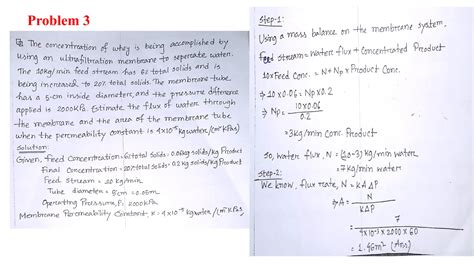 Problem 3
The concentration of whey is being accomplished by
using an ultrafiltration membrane to seperate water.
The 10kg/min feed stream has 6% total solids and is
being increased to 20% total solids. The membrane tube
has a 5-cm inside diameters, and the pressure difference
applied is 2000kPa. Estimate the flux of water through
the membrane and the area of the membrane tube
when the permeability constant is 4x10⁻⁵ kg water/(m² kPa s)
Solution:
Given, Feed Concentration = 6% total solids = 0.06 kg solids/kg Product
Final Concentration = 20% total solids = 0.2 kg solids/kg Product
Feed Stream = 10 kg/min
Tube diameter = 5cm = 0.05m
Operating Pressure, P = 2000kPa
Membrane Permeability Constant, K = 4x10⁻⁵ kg water/(m² kPa s)
Step-1:
Using a mass balance on the membrane system,
Feed stream = Water flux + Concentrated Product
10 x Feed Conc. = N + Np x Product Conc.
⇒ 10 x 0.06 = Np x 0.2
⇒ Np = 10 x 0.06
0.2
= 3 kg/min Conc. Product
So, water flux, N = (10-3) kg/min water
= 7 kg/min water
Step-2:
We know, flux rate, N = KAΔP
⇒ A = N
KΔP
= 7
4x10⁻⁵ x 2000 x 60
= 1.46m² (Ans)